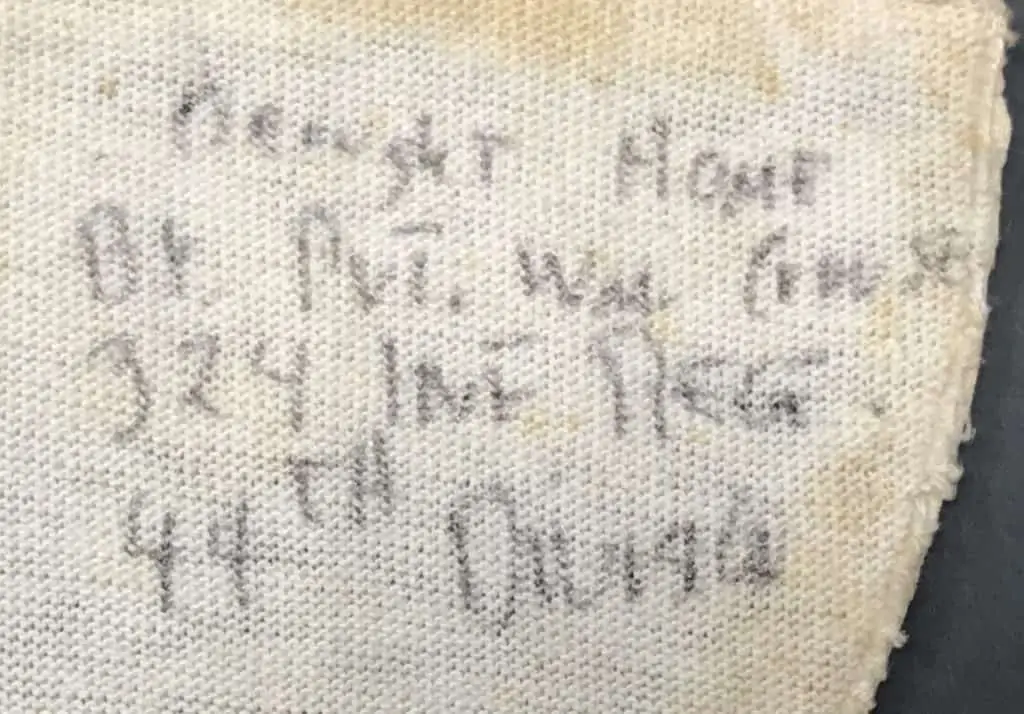 Bought Home
By Pvt. Wm
324 Inf Reg.
44 TH Division